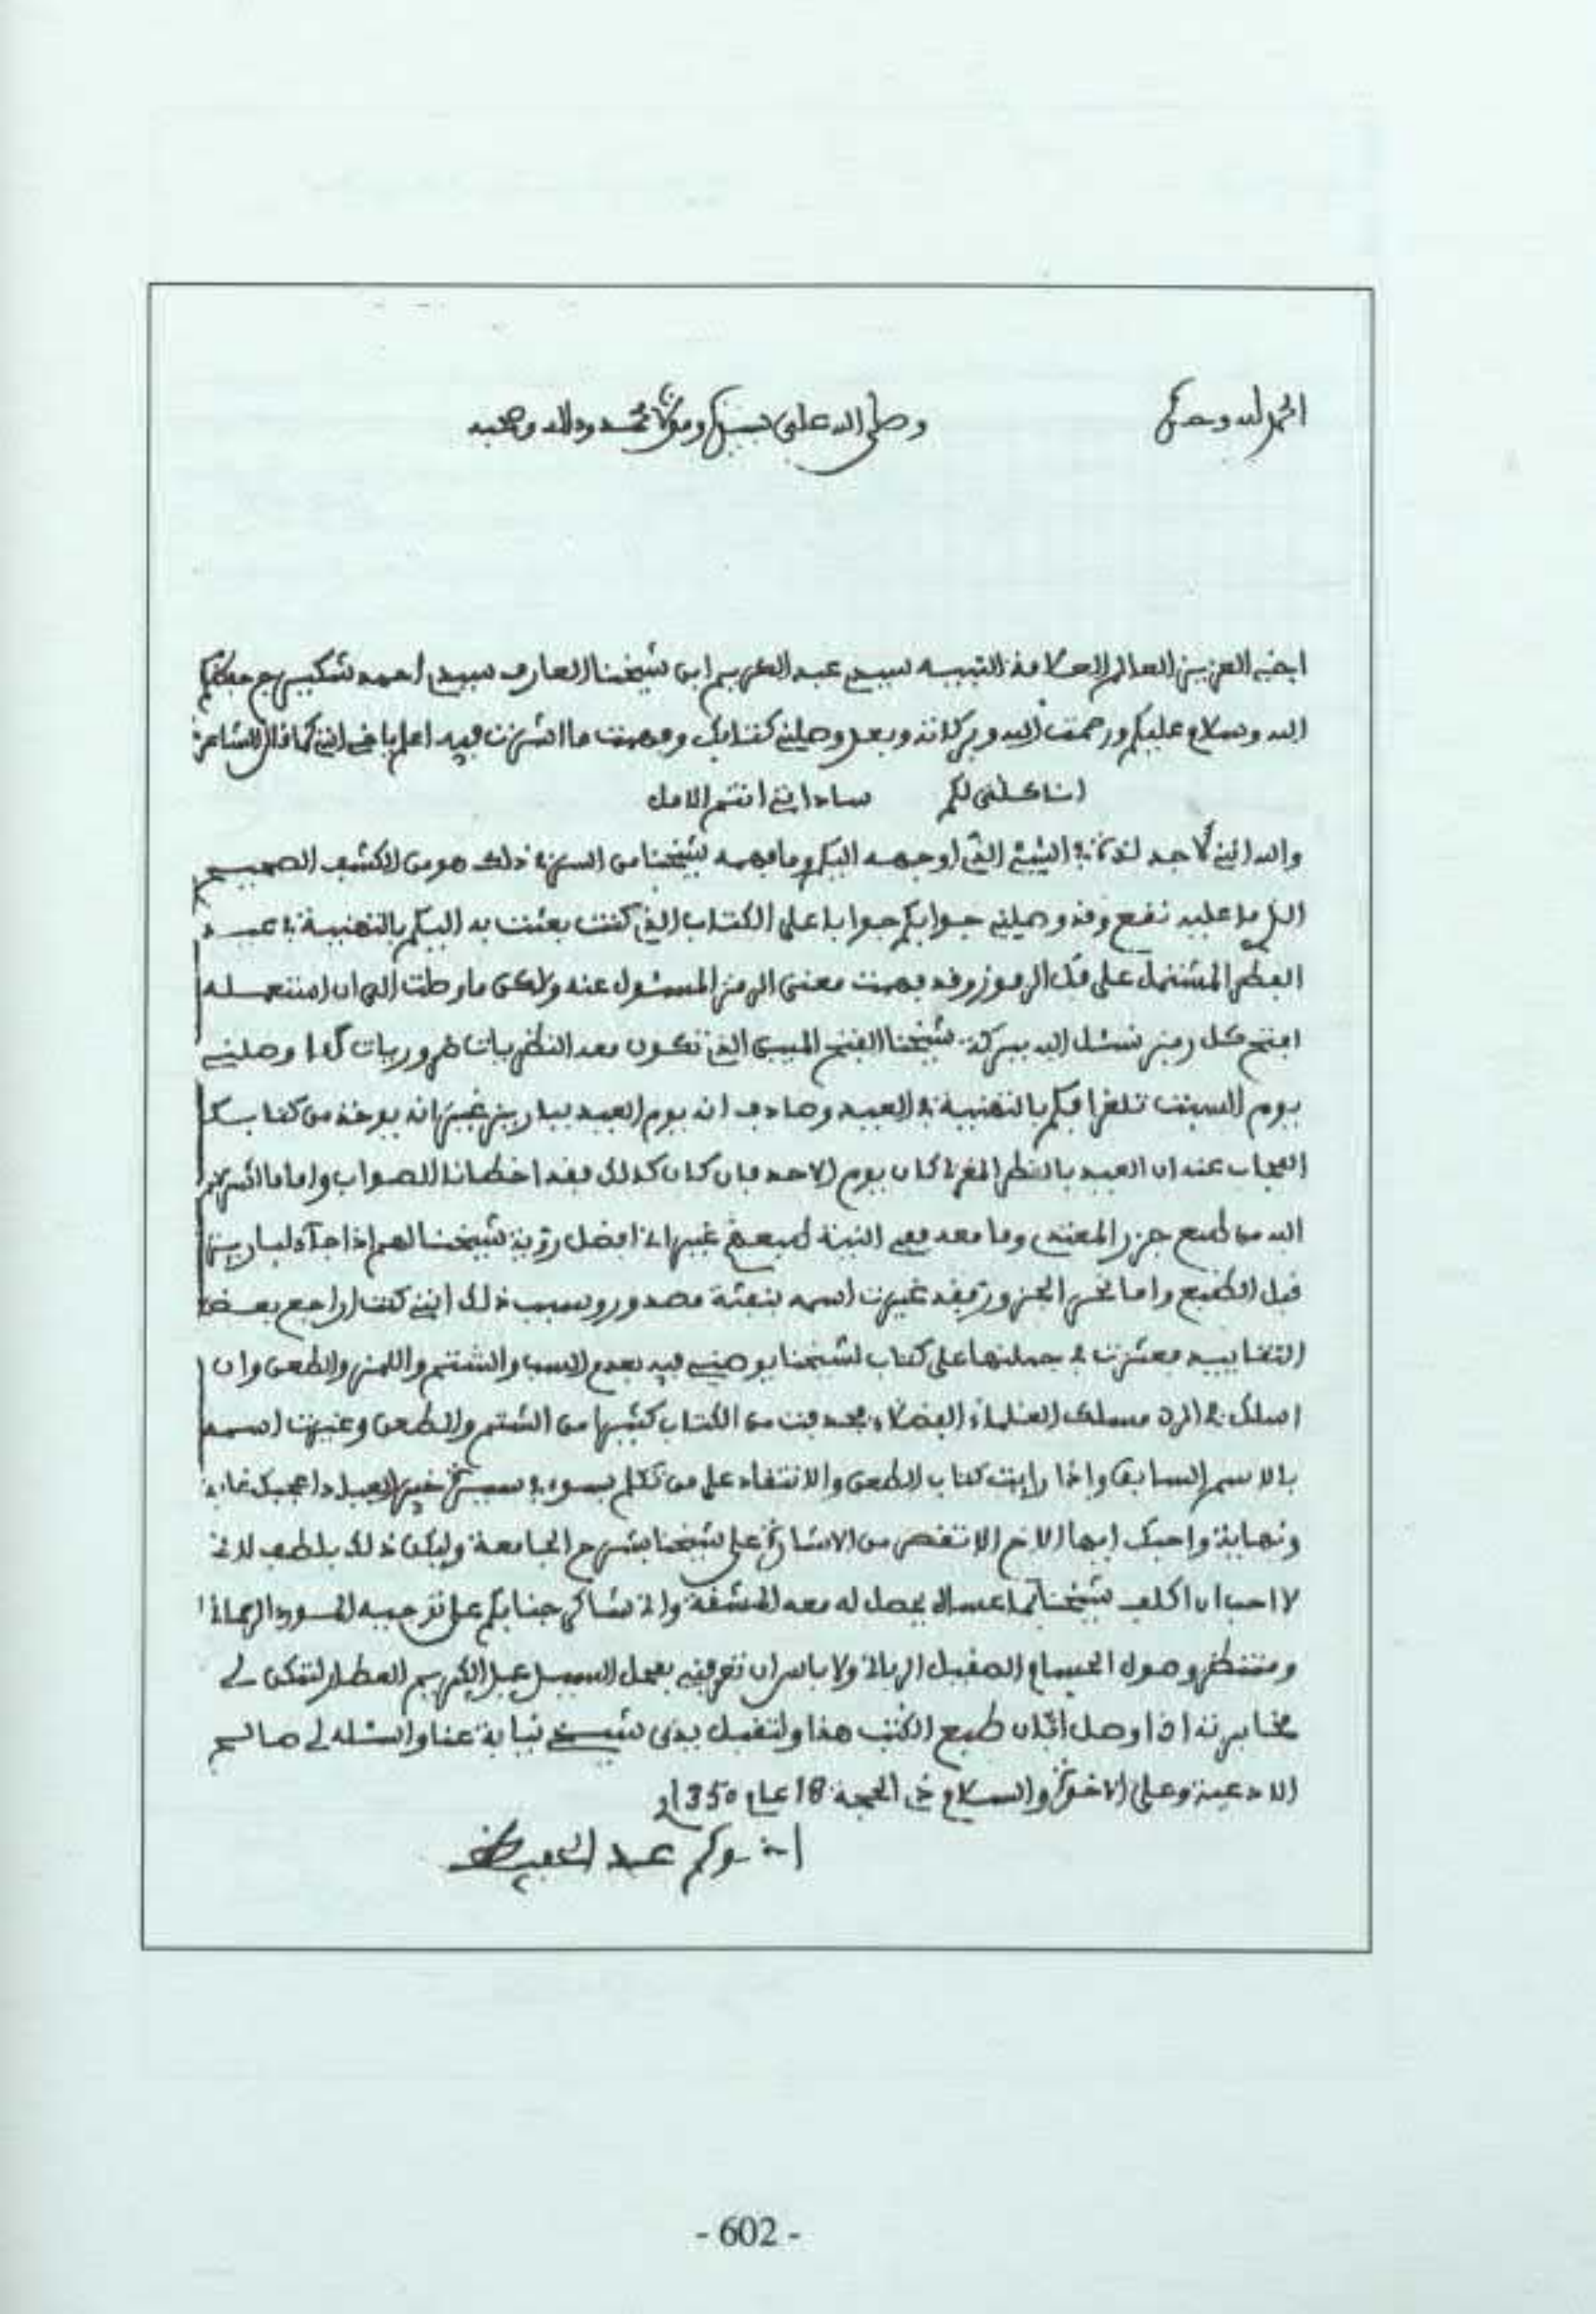 الحمد لله وحده وصلى الله على سيدنا ومولانا محمد وءاله وصحبه
اخي العزيز العالم العلامة النبيه سيدي عبد الكريم ابن شيخنا العارف سيدي احمد سكيرج حفظكم
الله وسلام عليكم ورحمت الله وبركاته وبعد وصلني كتابك وفهمت ما اشرت فيه اعلم يا خي انني كما قال الشاعر
انا كلي لكم ساداتي انتم الامل
والله انني لاجد لذة في الشيء الذي اوجهه اليكم وما فهمه شيخنا من السر في ذلك هو من الكشف الصحيح
الذي ما عليه نقع وقد وصلني جوابكم جوابا على الكتاب الذي كنت بعثت به اليكم بالتهنية في عيد
الفطر المشتمل على فك الرموز وقد فهمت معنى الرمز المسئول عنه ولاكن ما وصلت الى ان استعمله
افتح كل رمز نسئل الله ببركة شيخنا الفتح المبين الذي تكون معه النظريات ضروريات كما وصلني
يوم السبت تلغرافكم بالتهنية في العيد وصادف انه يوم العيد بباريز غير انه يوخذ من كتابك
المجاب عنه ان العيد بالقطر المغربي كان يوم الاحد فان كان كذلك فقد اخطانا الصواب واما ما اشرتم
اليه من طبع المعتدي وما معه فهي النية غير اني افضل رؤية شيخنا لهم اذا جآء لباريز
قبل الطبع واما الجزور فقد غيرت اسمه بنفثة مصدور وسبب ذلك انني كنت اراجع بعض
التقاييد فعثرت في جملتها على كتاب لشيخنا يوصيني فيه بعدم السب والشتم واللمز والطعن وان
اسلك في الرد مسلك العلماء الفضلاء فحذفت من الكتاب كثيرا من الشتم والطعن وغيرت اسمه
بالاسم السابق واذا رايت كتاب الطعن والانتقاد على من تكلم بسوء في خير العباد اعجبك غاية
ونهاية واحبك ايها الاخ الا تنقص من الاشارة على شيخنا بشرح الجامعة وليكن ذلك بلطف لاني
لا احب ان اكلف شيخنا بما عسى ان يحصل له معه المشقة واني شاكر جنابكم على توجيه
ومنتظر وصول الحسام الصقيل الرباني ولا باس ان تعرفني بمحل السيد عبد الكريم العطار لتمكن لي
مخابرته اذا وصل ابان طبع الكتب هذا ولتقبل يدى شيخي نيابة عنا واسئله لي صالح
الادعية وعلى الاخوة والسلام في الحجة 18 عام 1350
اخوكم عبد الحفيظ
- 602 -